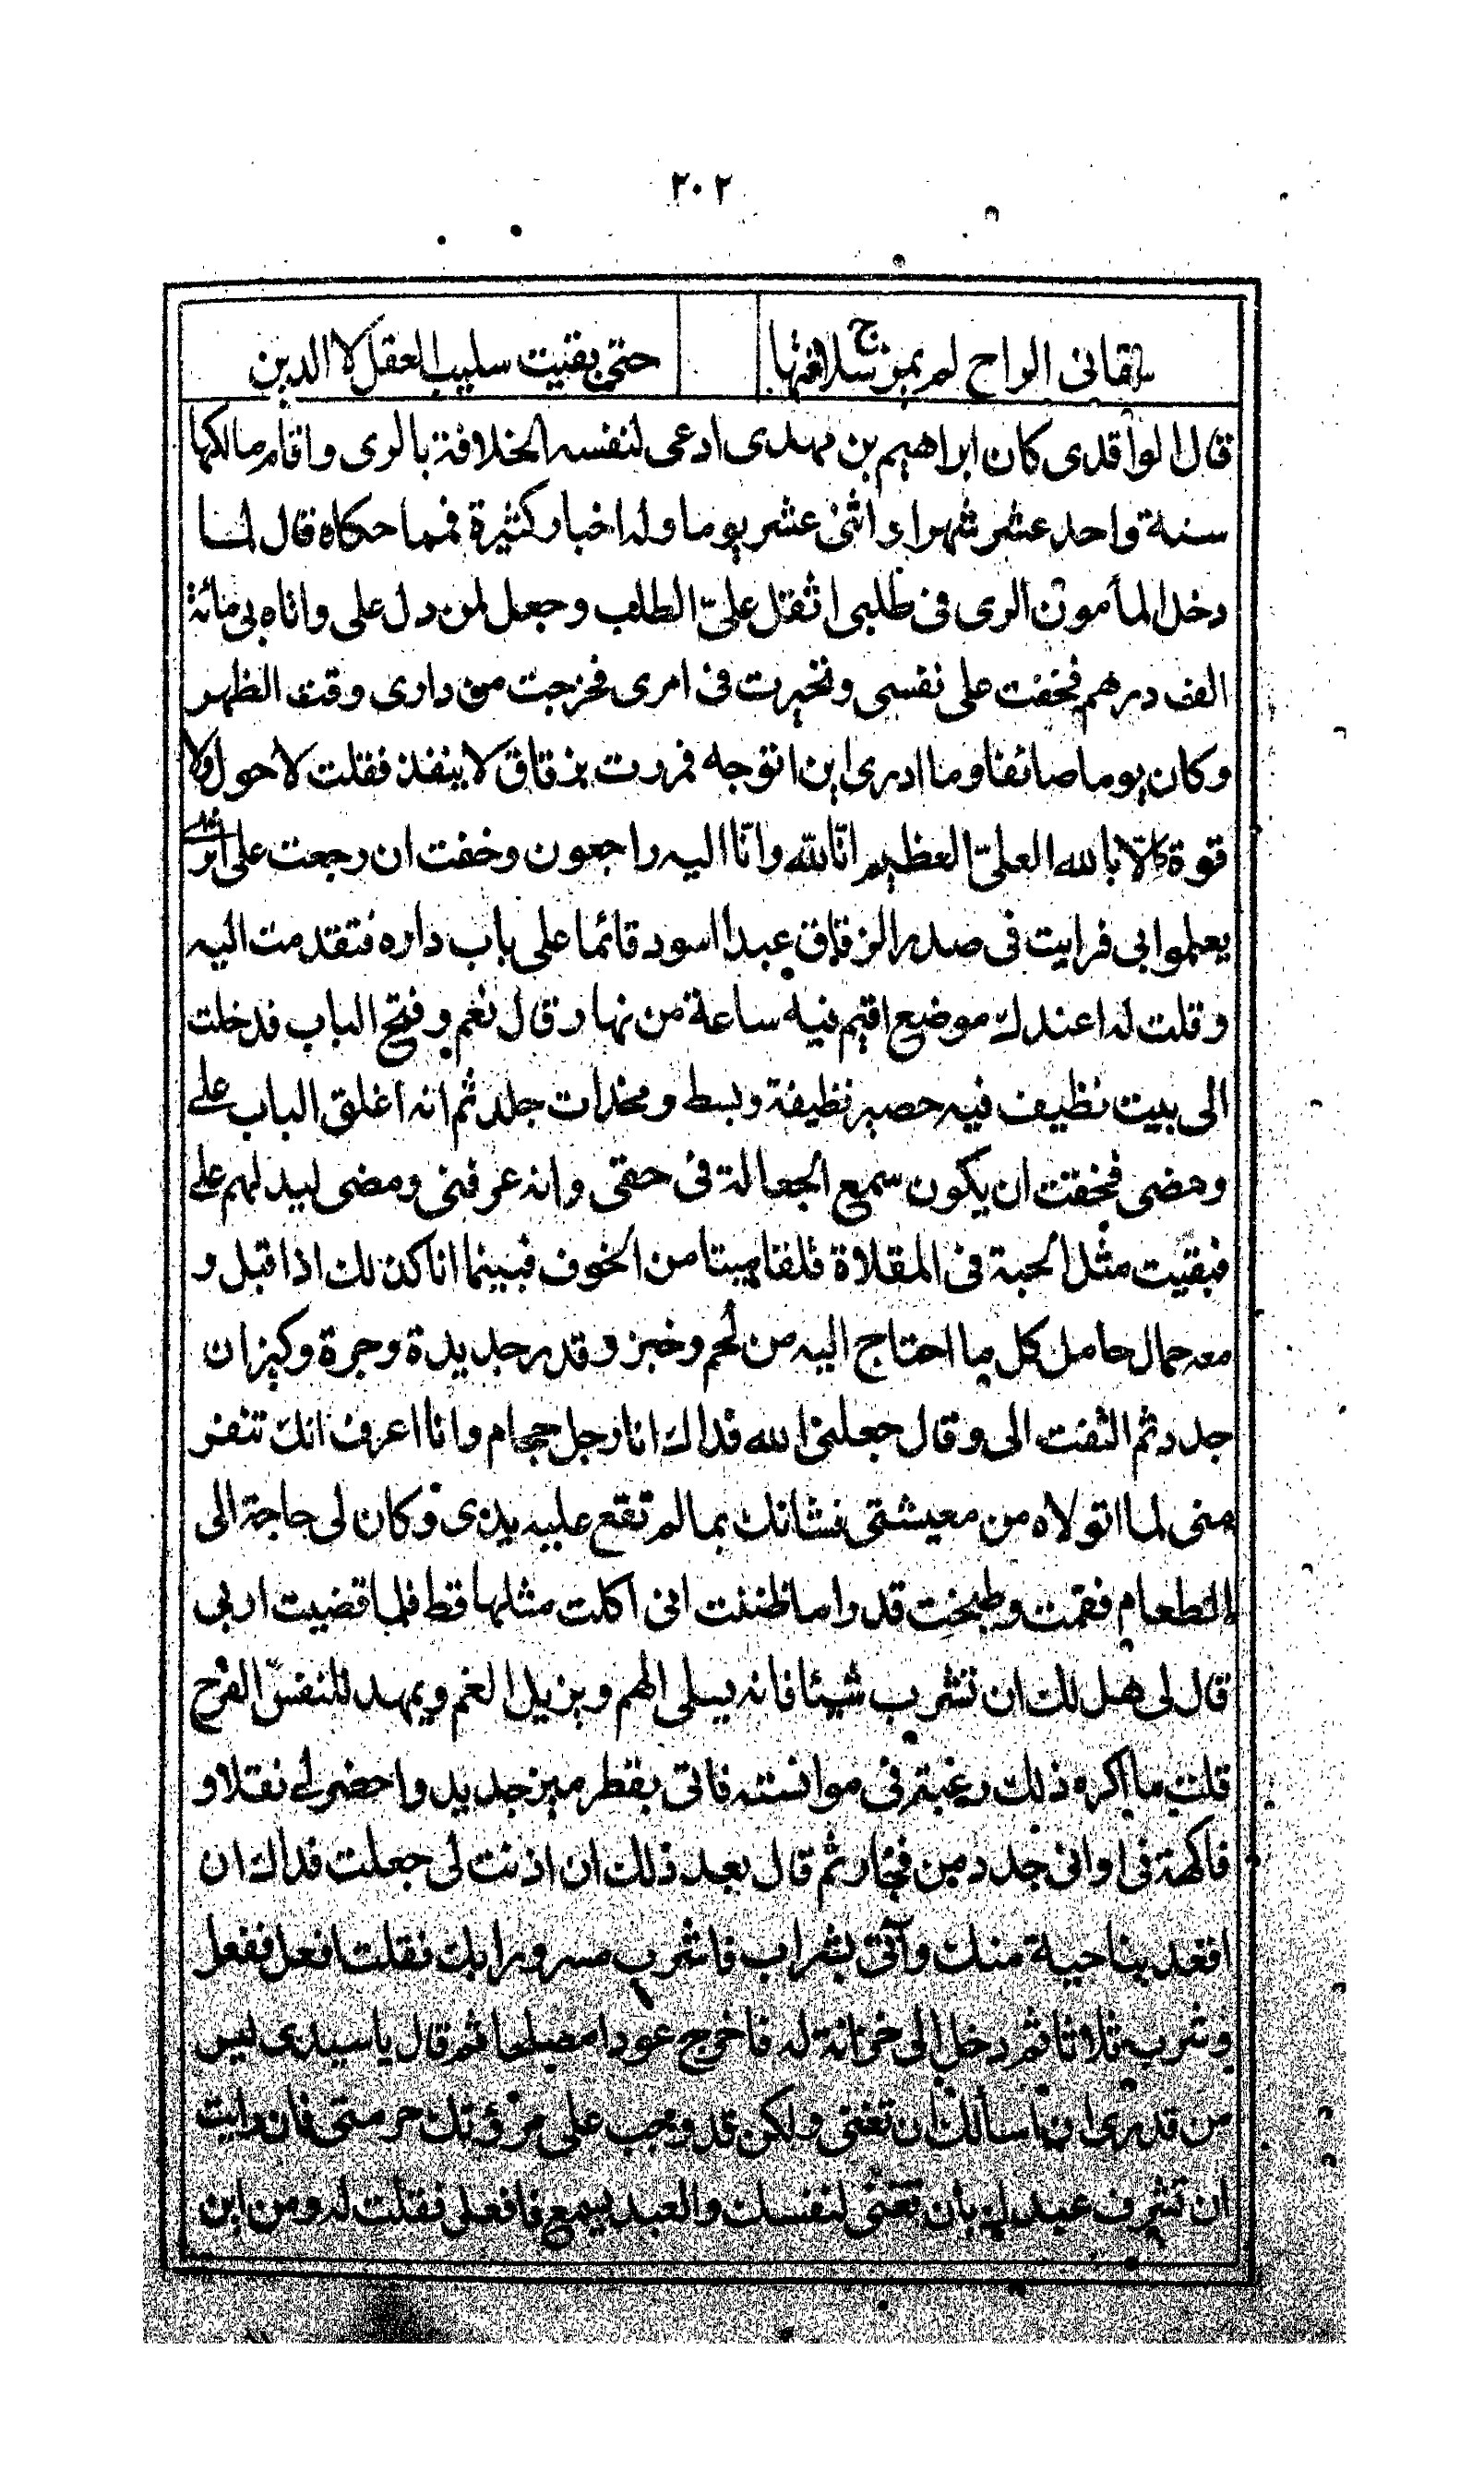 ٢٠٢
سقانى الراح لم يمزج سلافتها حتى بقيت سليب العقل لا الدين
قال الواقدى كان ابراهيم بن مهدى ادعى لنفسه الخلافة بالرى واقام مالكها
سنة واحد عشر شهرا واثنى عشر يوما وله اخبار كثيرة فمما حكاه قال لما
دخل المأمون الرى فى طلبى اثقل علىّ الطلب وجعل لمن دل على واتاه بى مائة
الف درهم فخفت على نفسى وتحيرت فى امرى فخرجت من دارى وقت الظهر
وكان يوما صائفا وما ادرى اين اتوجه فمررت بزقاق لا ينفذ فقلت لا حول ولا
قوة الّا بالله العلىّ العظيم انّا لله وانّا اليه راجعون وخفت ان رجعت على اثرى
يعلموا بى فرايت فى صدر الزقاق عبدا اسود قائما على باب داره فتقدمت اليه
وقلت له اعندك موضع اقيم فيه ساعة من نهار قال نعم وفتح الباب فدخلت
الى بيت نظيف فيه حصير نظيفة وبسط ومخدات جلد ثم انه اغلق الباب على
ومضى فخفت ان يكون سمع الجعالة فى حقى وانه عرفنى ومضى ليدلهم على
فبقيت مثل الحبة فى المقلاة قلقا ميتا من الخوف فبينما انا كذلك اذ اقبل و
معه حمال حامل كل ما احتاج اليه من لحم وخبز وقدر جديدة وجرة وكيزان
جدد ثم التفت الى وقال جعلنى الله فداك انا رجل حجام وانا اعرف انك تنفر
منى لما اتولاه من معيشتى نشانك بما لم تقع عليه يدى وكان لى حاجة الى
الطعام فقمت وطبخت قدرا ما ظننت انى اكلت مثلها قط فلما قضيت اربى
قال لى هل لك ان تشرب شيئا فانه يسلى الهم ويزيل الغم ويمهد للنفس الفرح
قلت ما اكره ذلك رغبة فى موانسته فاتى بقطرميز جديد واحضر لى نقلا و
فاكهة فى اوانى جدد من فخار ثم قال بعد ذلك ان اذنت لى جعلت فداك ان
اقعد بناحية منك وآتى بشراب فاشرب مسرورا بك فقلت افعل ففعل
وشرب ثلاثا ثم دخل الى خزانة له فاخرج عودا مصلحا ثم قال يا سيدى ليس
من قدرى ان اسألك ان تغنى ولكن قد وجب على مروتك حرمتى فان رايت
ان تشرف عبدك بأن تغنى لنفسك والعبد يسمع فافعل فقلت له ومن اين